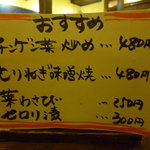 おすすめ
チンゲン菜炒め…480円
とりねぎ味噌焼…480円
葉わさび…250円
セロリ漬…300円